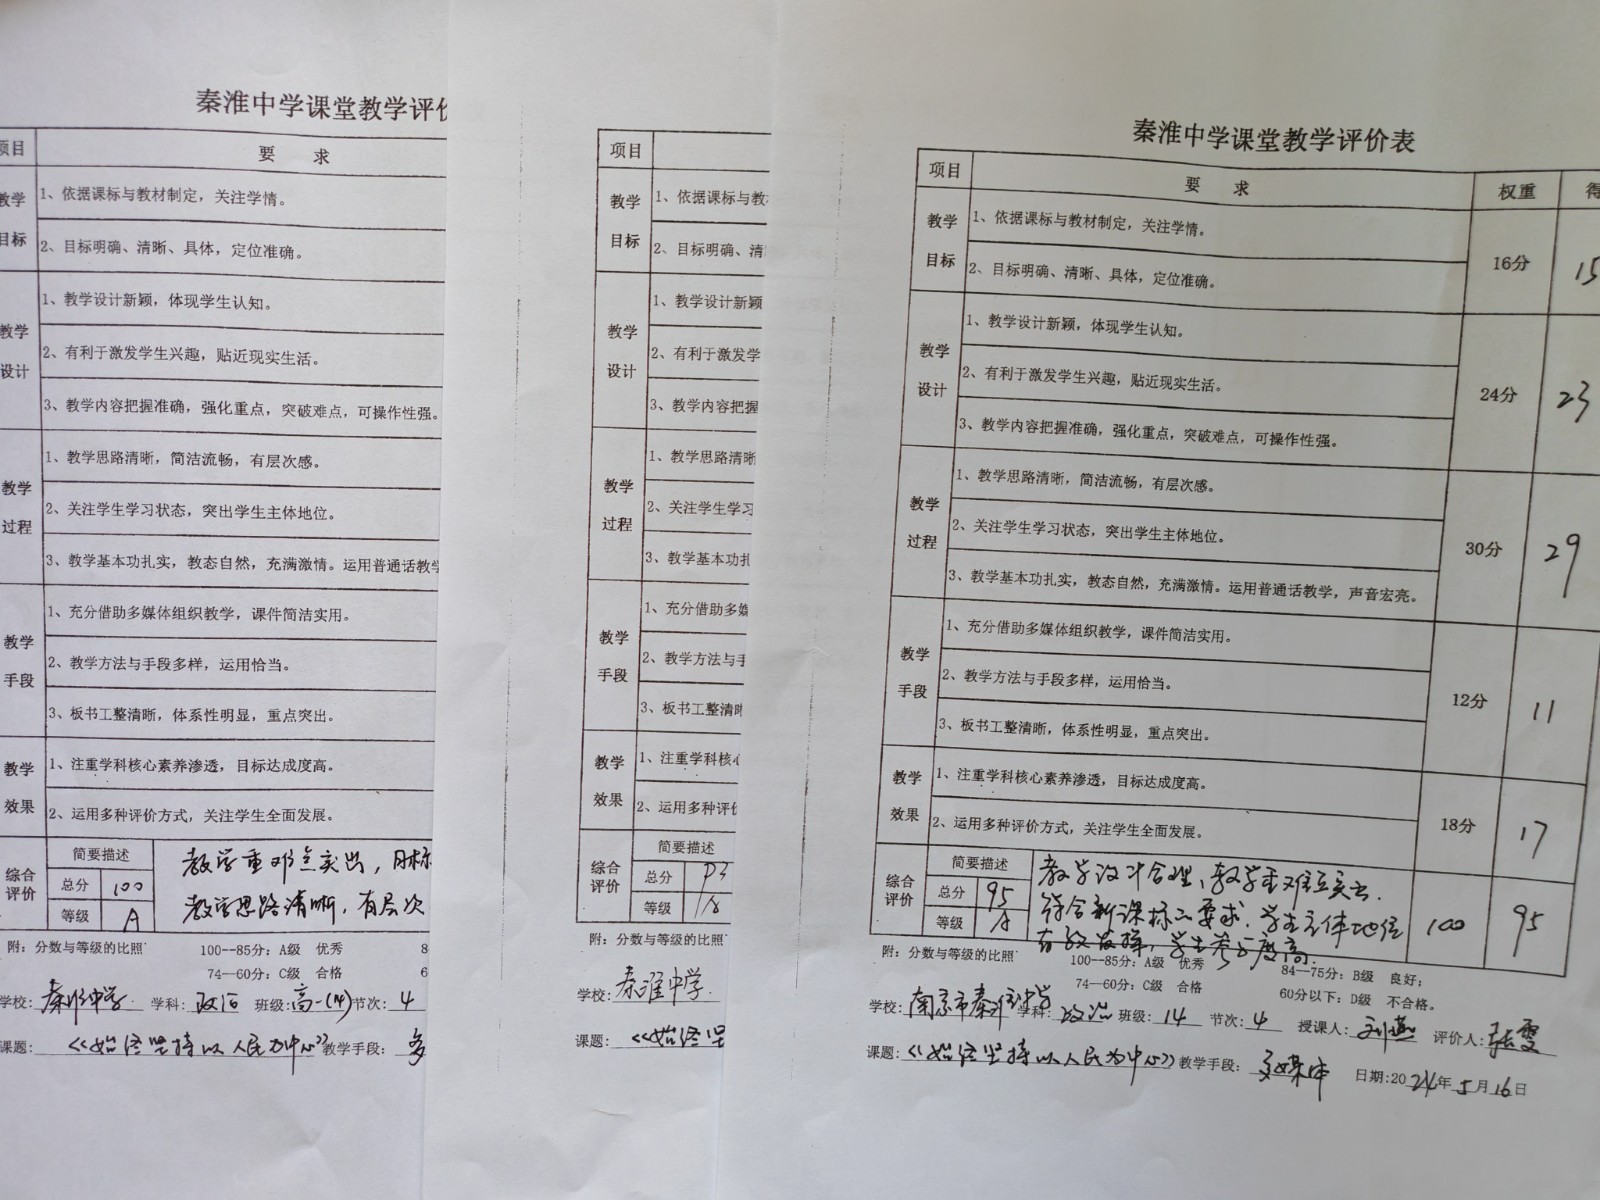 秦淮中学课堂教学评
项目
要 求
教学
目标
1、依据课标与教材制定，关注学情。
2、目标明确、清晰、具体，定位准确。
教学
设计
1、教学设计新颖，体现学生认知。
2、有利于激发学生兴趣，贴近现实生活。
3、教学内容把握准确，强化重点，突破难点，可操作性强。
教学
过程
1、教学思路清晰，简洁流畅，有层次感。
2、关注学生学习状态，突出学生主体地位。
3、教学基本功扎实，教态自然，充满激情。运用普通话教学
教学
手段
1、充分借助多媒体组织教学，课件简洁实用。
2、教学方法与手段多样，运用恰当。
3、板书工整清晰，体系性明显，重点突出。
教学
效果
1、注重学科核心素养渗透，目标达成度高。
2、运用多种评价方式，关注学生全面发展。
综合
评价
简要描述
总分 100
等级 A
教学重难点突出，目标
教学思路清晰，有层次
附：分数与等级的比照
100--85分：A级 优秀 8
74—60分：C级 合格 6
学校：秦淮中学 学科：政治 班级：高一(14) 节次：4
课题：《始终坚持以人民为中心》教学手段：多
项目
教学
目标
1、依据课标与教
2、目标明确、清
教学
设计
1、教学设计新颖
2、有利于激发学
3、教学内容把握
教学
过程
1、教学思路清晰
2、关注学生学习
3、教学基本功扎
教学
手段
1、充分借助多媒
2、教学方法与手
3、板书工整清晰
教学
效果
1、注重学科核心
2、运用多种评价
综合
评价
简要描述
总分 93
等级 A
附：分数与等级的比照
学校：秦淮中学
课题：《始终坚
秦淮中学课堂教学评价表
项目
要 求
权重
得
教学
目标
1、依据课标与教材制定，关注学情。
2、目标明确、清晰、具体，定位准确。
16分
15
教学
设计
1、教学设计新颖，体现学生认知。
2、有利于激发学生兴趣，贴近现实生活。
3、教学内容把握准确，强化重点，突破难点，可操作性强。
24分
23
教学
过程
1、教学思路清晰，简洁流畅，有层次感。
2、关注学生学习状态，突出学生主体地位。
3、教学基本功扎实，教态自然，充满激情。运用普通话教学，声音宏亮。
30分
29
教学
手段
1、充分借助多媒体组织教学，课件简洁实用。
2、教学方法与手段多样，运用恰当。
3、板书工整清晰，体系性明显，重点突出。
12分
11
教学
效果
1、注重学科核心素养渗透，目标达成度高。
2、运用多种评价方式，关注学生全面发展。
18分
17
综合
评价
简要描述
总分 95
等级 A
教学设计合理，教学重难点突出，
符合新课标的要求，学生主体地位
有效发挥，学生参与度高。
100
95
附：分数与等级的比照
100--85分：A级 优秀 84—75分：B级 良好；
74—60分：C级 合格 60分以下：D级 不合格。
学校：南京市秦淮中学 学科：政治 班级：14 节次：4 授课人：刘燕 评价人：张雯
课题：《始终坚持以人民为中心》教学手段：多媒体 日期：2024年5月16日